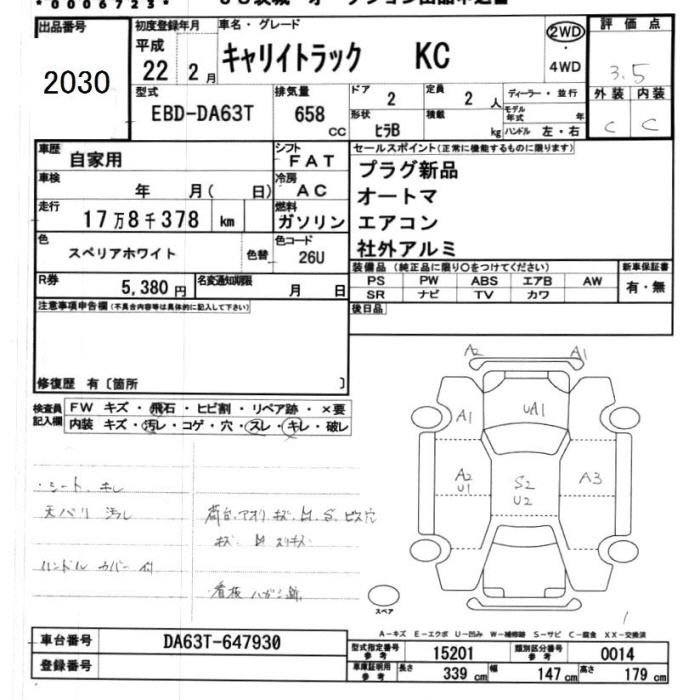 *0006723*
出品番号
2030
初度登録年月
平成
22年 2月
車名・グレード
キャリイトラック KC
2WD
4WD
評価点
3.5
外装 内装
C C
型式
EBD-DA63T
排気量
658 CC
ドア 2
定員 2人
形状 ヒラB
積載 kg
ディーラー・並行
モデル年式 年
ハンドル 左・右
車歴 自家用
シフト FAT
車検 年 月( 日)
冷房 AC
走行 17万8千378 km
燃料 ガソリン
色 スペリアホワイト 色替
色コード 26U
R券 5,380円
名変通知期限 月 日
セールスポイント(正常に機能するものに限ります)
プラグ新品
オートマ
エアコン
社外アルミ
装備品(純正品に限り○をつけてください)
PS PW ABS エアB AW
SR ナビ TV カワ
新車保証書
有・無
後日品
注意事項申告欄(不具合内容等は具体的に記入して下さい)
修復歴 有〔箇所 〕
検査員記入欄
FW キズ・飛石・ヒビ割・リペア跡・×要
内装 キズ・汚レ・コゲ・穴・スレ・キレ・破レ
・シート、キレ
天バリ 汚レ
ハンドル カバー付
荷台、アオリ キズ、凹、S、ビス穴
キズ・凹 スリキズ
・看板 ハガシ跡
A2 A1
A1 UA1
A2 U1
S2 U2
A3
スペア
A-キズ E-エクボ U-凹み W-補修跡 S-サビ C-腐食 XX-交換済
車台番号 DA63T-647930
登録番号
型式指定番号 参考 15201
類別区分番号 参考 0014
車庫証明用 参考 長さ 339cm 幅 147cm 高さ 179cm